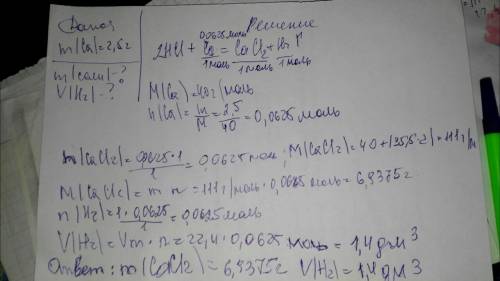 Дано: Решение
m(Ca)=2,5г
0,0625 моль
2HCl + Ca = CaCl₂ + H₂↑
1 моль 1 моль 1 моль
m(соли)-?
V(H₂)-?
M(Ca)=40г/моль
n(Ca)=m/M=2,5/40=0,0625 моль
n(CaCl₂)=0,0625·1/1=0,0625 моль; M(CaCl₂)=40+(35,5·2)=111 г/м
M(CaCl₂)=m·n=111г/моль·0,0625 моль=6,9375г
n(H₂)=1·0,0625/1=0,0625 моль
V(H₂)=Vm·n=22,4·0,0625 моль=1,4 дм³
Ответ: m(CaCl₂)=6,9375г V(H₂)=1,4 дм³